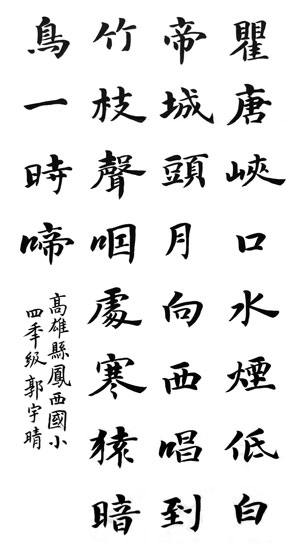 瞿唐峽口水煙低白
帝城頭月向西唱到
竹枝聲咽處寒猿暗
鳥一時啼
高雄縣鳳西國小
四季級郭宇晴